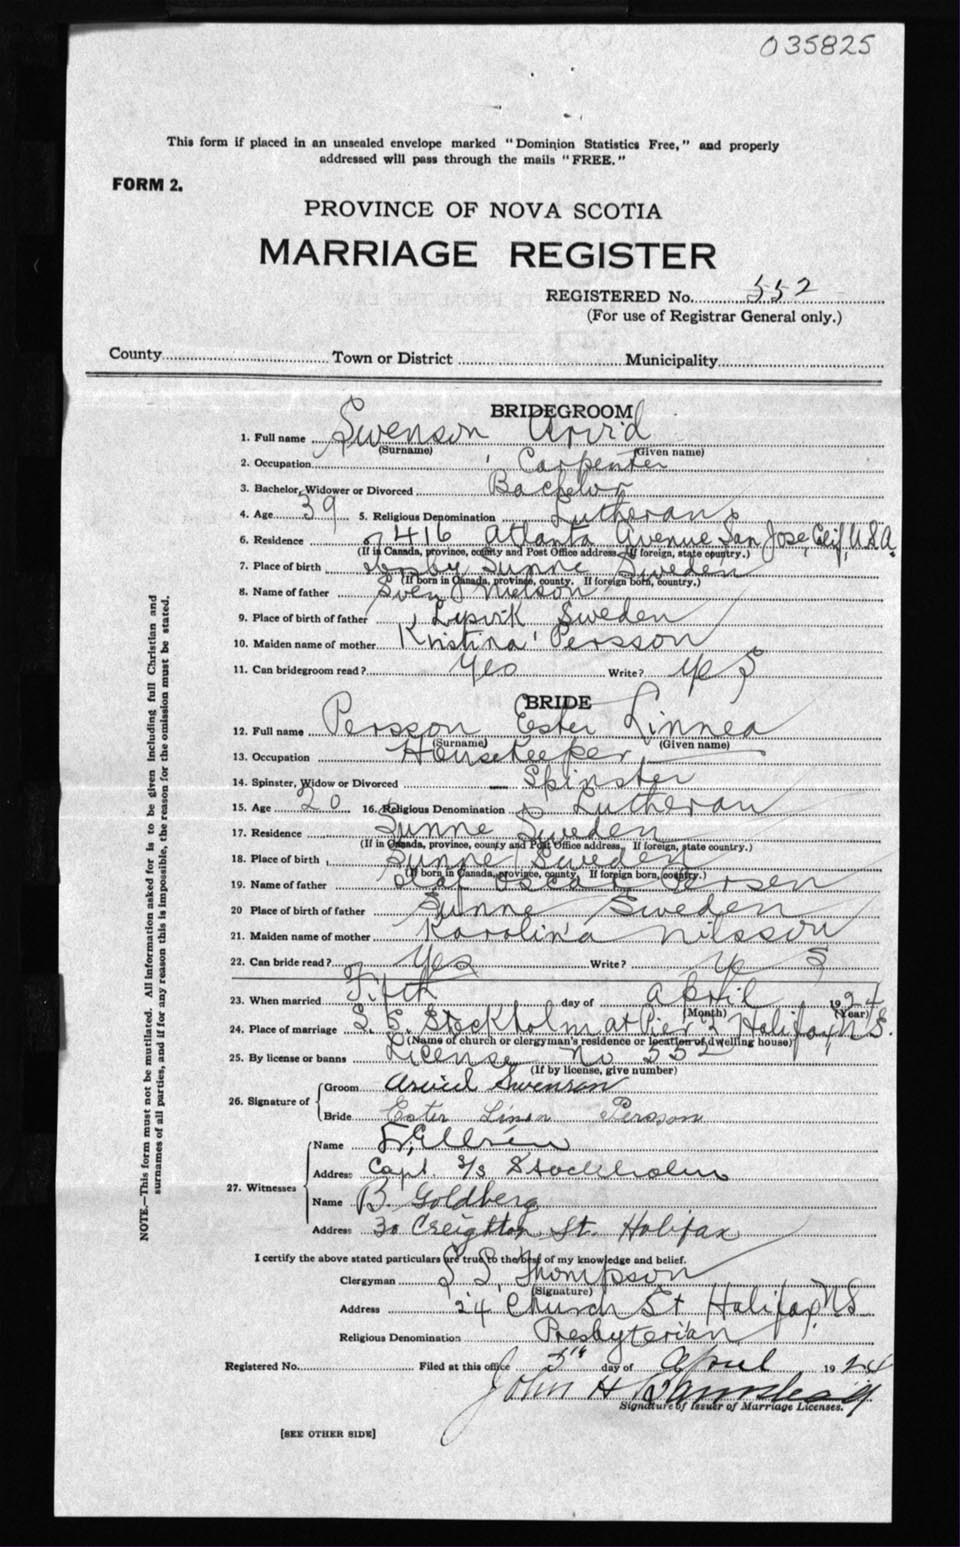 035825
This form if placed in an unsealed envelope marked "Dominion Statistics Free," and properly
addressed will pass through the mails "FREE."
FORM 2.
PROVINCE OF NOVA SCOTIA
MARRIAGE REGISTER
REGISTERED No. 552
(For use of Registrar General only.)
County Town or District Municipality
BRIDEGROOM
1. Full name Swenson Arvid
(Surname) (Given name)
2. Occupation Carpenter
3. Bachelor, Widower or Divorced Bachelor
4. Age 39 5. Religious Denomination Lutheran
6. Residence 416 Atlanta Avenue San Jose, Calif, U.S.A
(If in Canada, province, county and Post Office address. If foreign, state country.)
7. Place of birth Sunne Sweden
(If born in Canada, province, county. If foreign born, country.)
8. Name of father Sven Nielson
9. Place of birth of father Sweden
10. Maiden name of mother Kristina Persson
11. Can bridegroom read? Yes Write? Yes
BRIDE
12. Full name Persson Ester Linnea
(Surname) (Given name)
13. Occupation Housekeeper
14. Spinster, Widow or Divorced Spinster
15. Age 20 16. Religious Denomination Lutheran
17. Residence Sunne Sweden
(If in Canada, province, county and Post Office address. If foreign, state country.)
18. Place of birth Sunne Sweden
(If born in Canada, province, county. If foreign born, country.)
19. Name of father Olaf Oscar Persen
20 Place of birth of father Sunne Sweden
21. Maiden name of mother Karolina Nilsson
22. Can bride read? Yes Write? Yes
23. When married Fifth day of April 1924
(Month) (Year)
24. Place of marriage S.S. Stockholm at Pier 2 Halifax N.S.
(Name of church or clergyman's residence or location of dwelling house)
25. By license or banns License No 552
(If by license, give number)
26. Signature of
Groom Arvid Swenson
Bride Ester Linea Persson
27. Witnesses
Name
Address Capt. S/S Stockholm
Name B. Goldberg
Address 30 Creighton St. Halifax
I certify the above stated particulars are true to the best of my knowledge and belief.
Clergyman Thompson
(Signature)
Address 24 Church St Halifax, N.S
Religious Denomination Presbyterian
Registered No. Filed at this office 5th day of April 1924
John H
Signature of Issuer of Marriage Licenses.
[SEE OTHER SIDE]
NOTE.—This form must not be mutilated. All information asked for is to be given including full Christian and
surnames of all parties, and if for any reason this is impossible, the reason for the omission must be stated.